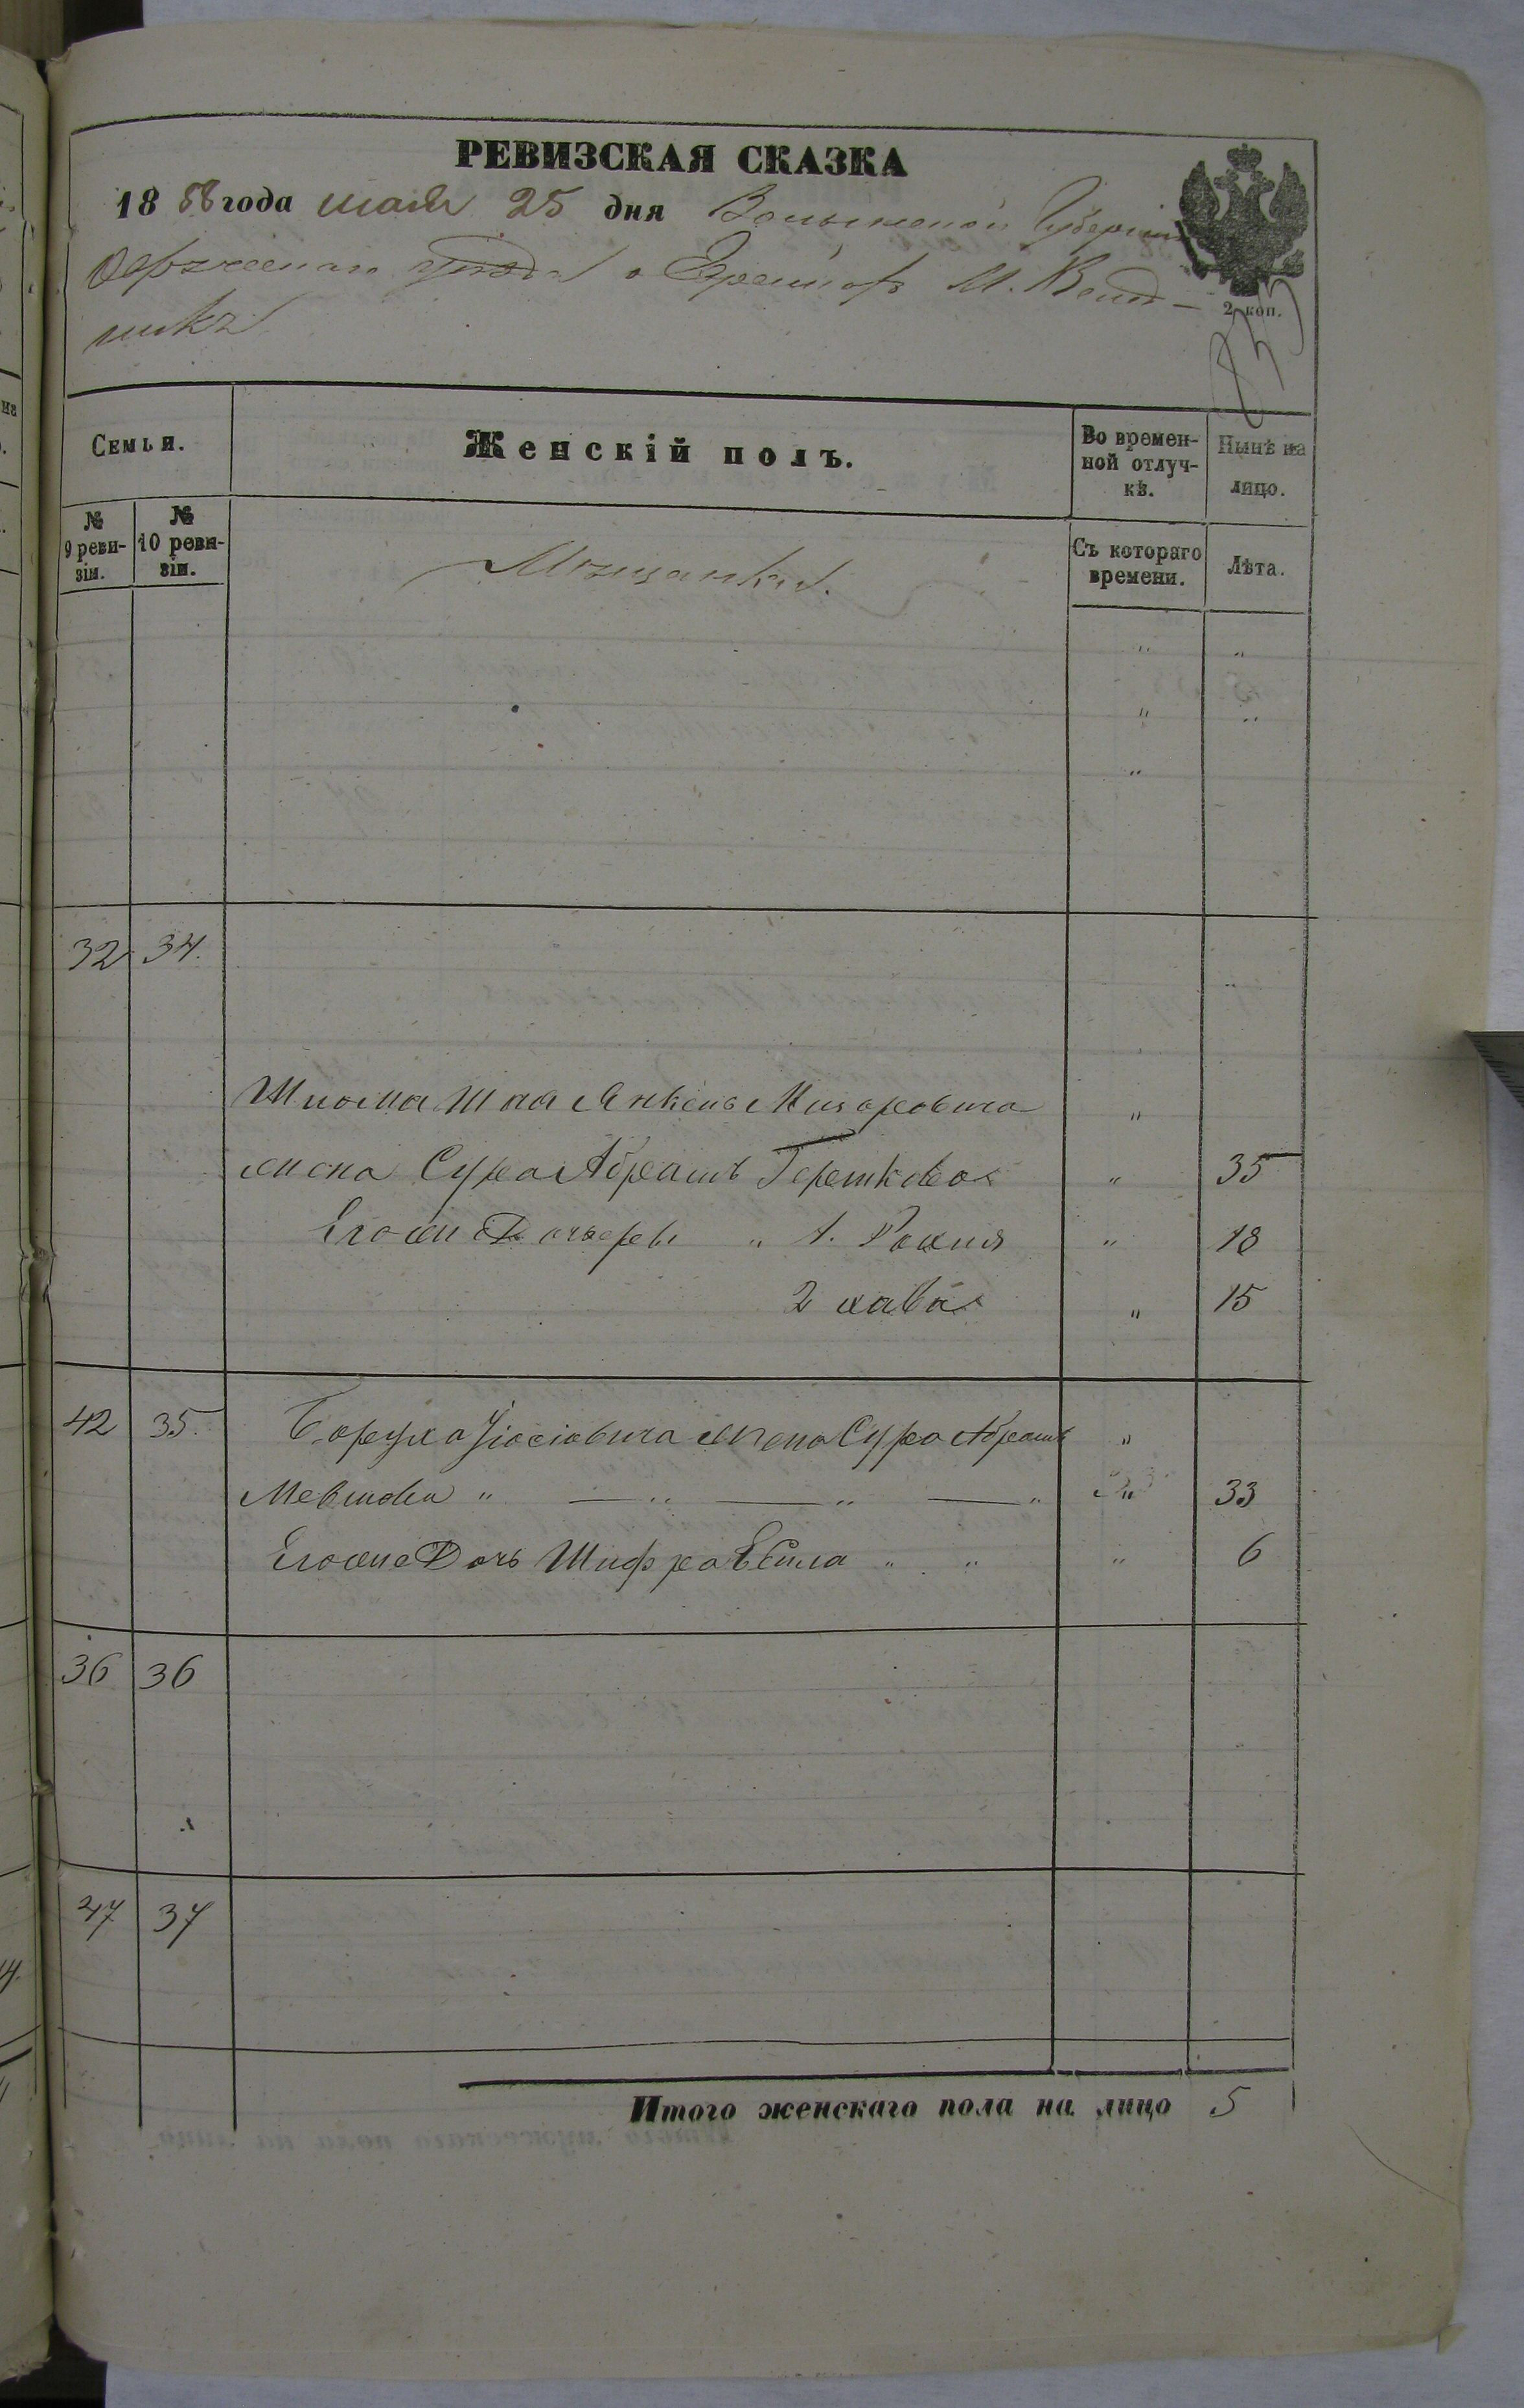 РЕВИЗСКАЯ СКАЗКА
18 58 года мая 25 дня Волынской Губерніи
уезда о Евреяхъ М.
2 коп.
Семья.
Женскій полъ.
Во времен-
ной отлуч-
кѣ.
Нынѣ на
лицо.
№
9 реви-
зіи.
№
10 реви-
зіи.
Мещанки.
Съ котораго
времени.
Лѣта.
32 34.
Шлома Янкель
жена Сура Абрамъ Гершкова 35
Его же Дочери 1. Рохля 18
2 хава 15
42 35. Боруха Іосіовича жена Сура Абрамъ
33
Его же Дочь Шифра 6
36 36
47 37
Итого женскаго пола на лицо 5